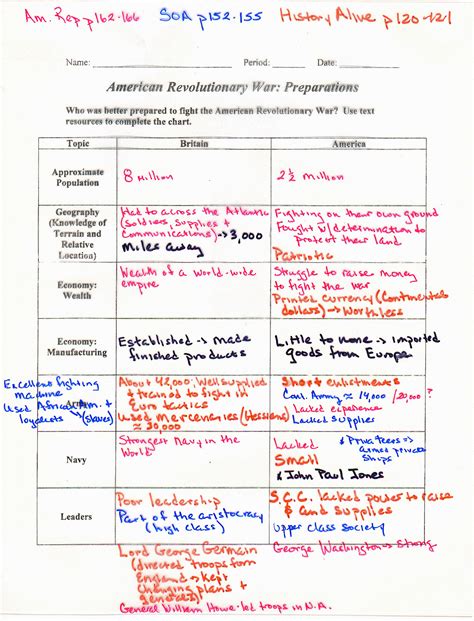 Am. Rep p162-166 SOA p152-155 History Alive p120-121
Name: Period: Date:
American Revolutionary War: Preparations
Who was better prepared to fight the American Revolutionary War? Use text
resources to complete the chart.
Topic Britain America
Approximate
Population
8 Million
2½ Million
Geography
(Knowledge of
Terrain and
Relative
Location)
Had to across the Atlantic
(soldiers, supplies +
Communications) → 3,000
Miles away
Fighting on their own ground
Fought w/determination to
protect their land
Patriotic
Economy:
Wealth
Wealth of a world-wide
empire
Struggle to raise money
to fight the war
Printed currency (Continental
dollars) → Worthless
Economy:
Manufacturing
Established → made
finished products
Little to none → imported
goods from Europe
Excellent fighting
machine
Used African Am. +
loyalists (slaves)
About 42,000; Well supplied
& trained to fight in
Euro tactics
Used Mercenaries (Hessians)
≈ 30,000
Short enlistments
Cont. Army ≈ 14,000 /20,000 ?
Lacked experience
Lacked supplies
Navy
Strongest Navy in the
World
Lacked
Small
& Privateers → armed private
ships
& John Paul Jones
Leaders
Poor leadership
Part of the aristocracy
(high class)
Lord George Germain
(directed troops from
England → kept
Changing plans +
generals)
General William Howe led troops in N.A.
S.C.C. lacked power to raise
$ and supplies
Upper Class Society
George Washington → Strong